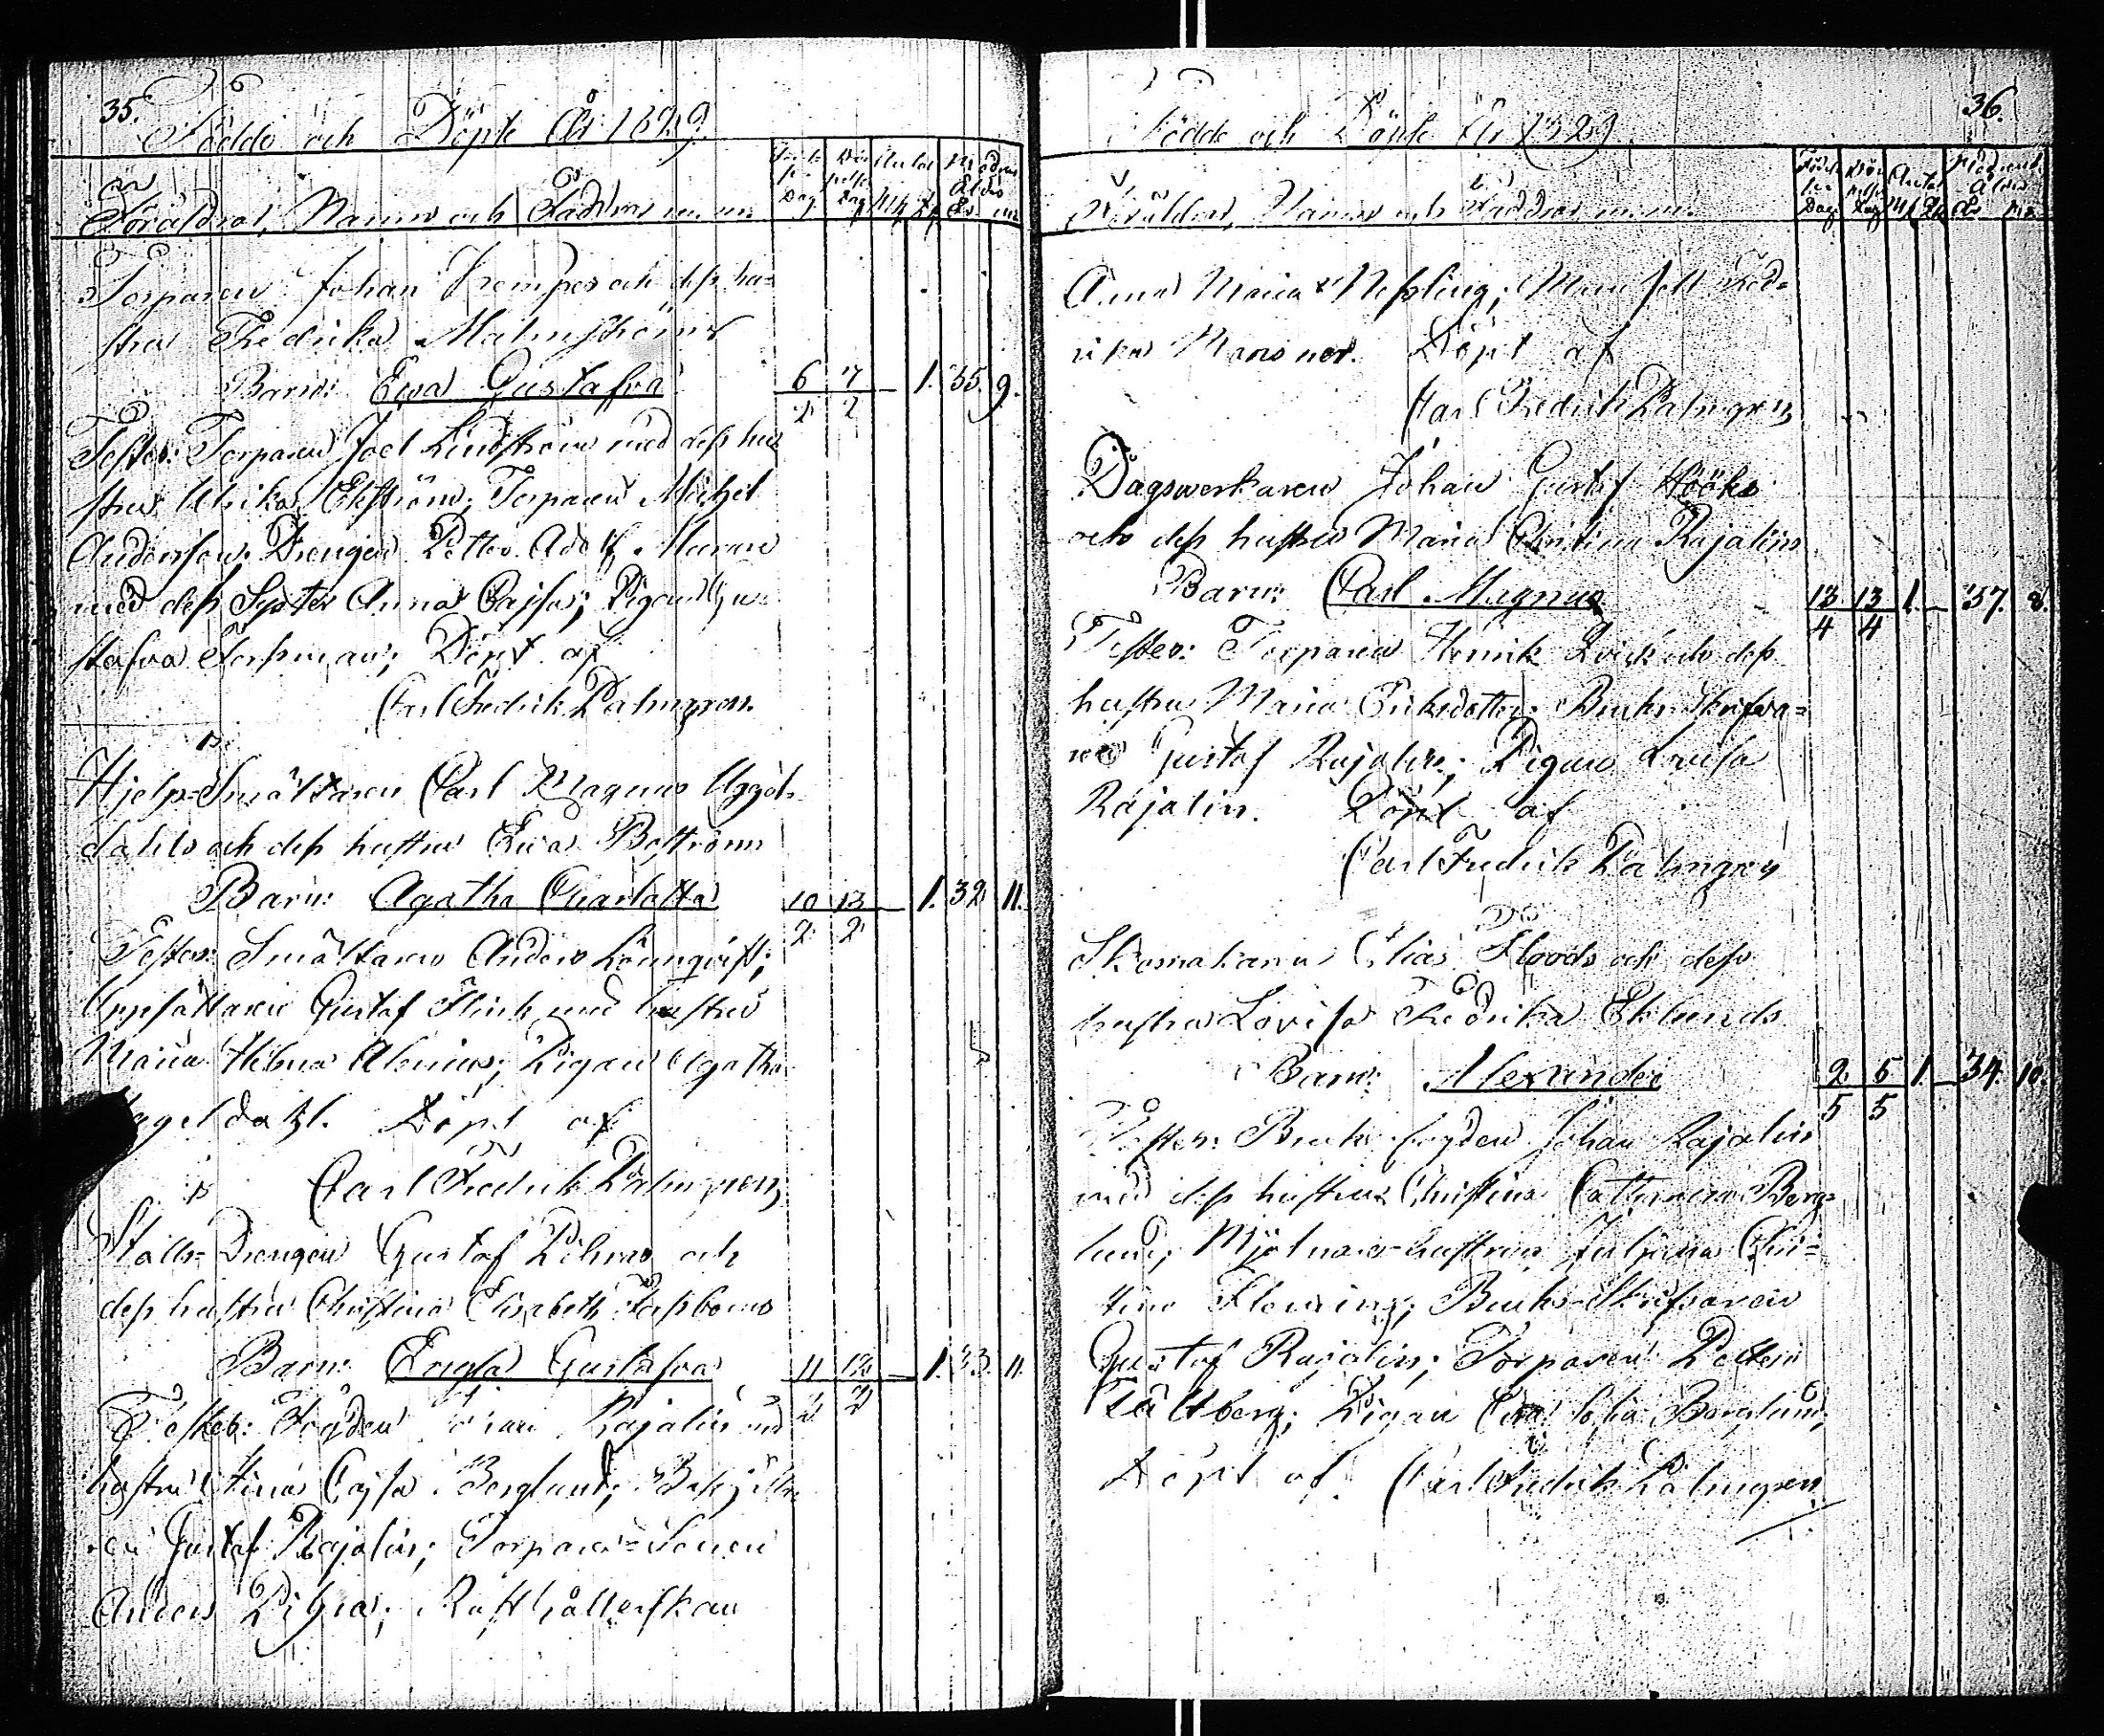 35.
Födde och Döpte År 1829.
Föräldrar, Namn och Faddrar m m
Födelse Dag
Döpelse Dag
Antal
Mk Qk
Modrens Ålder
År m
Torparen Johan Kempes och dess hu-
stru Fredrika Malmströms
Barn: Ewa Gustafva 6/2 7/2 — 1. 35. 9.
Testes: Torparen Joel Lindström med dess hu-
stru Ulrika Ekström; Torparen Michel
Andersson; Drengen Petter Adolf
med dess Syster Anna Cajsa; Pigan Gu-
stafva Forsman; Döpt af
Carl Fredrik Palmgren.
Hjelp-Smältaren Carl Magnus Uggel-
dahls och dess hustru Ewa Boströms
Barn: Agatha Charlotta 10/2 13/2 — 1. 32 11.
Testes: Smältaren Anders Lönnqvist;
Uppsättaren Gustaf Flink med hustru
Maria Helena Alenius; Pigan Agatha
Uggeldahl. Döpt af
Carl Fredrik Palmgren
Ställ-Drengen Gustaf Pihras och
dess hustru Christina Elisabeth Forsboms
Barn: Gustafva 11/2 12/2 — 1. 33. 11.
Testes: Fogden Johan Rajalin med
hustru Stina Cajsa Berglund;
Gustaf Rajalin; Torpare-Sonen
Anders Pihra; Rätthållerskan
36.
Födde och Döpte År 1829
Föräldrar, Namn och Faddrar m.m.
Födelse Dag
Döpelse Dag
Antal
Mk Qk
Modrens Ålder
År m
Anna Maria Nessling; Mamsell Fred-
rika Döpt af
Carl Fredrik Palmgren
Dagswerkaren Johan Gustaf Hööks
och dess hustru Maria Christina Rajalins
Barn: Carl Magnus 13/4 13/4 1. — 37. 8.
Testes: Torparen Henrik och dess
hustru Maria Eriksdotter; Bruks-Skrifva-
ren Gustaf Rajalin; Pigan Lovisa
Rajalin. Döpt af
Carl Fredrik Palmgren
Skomakaren Elias Floods och dess
hustru Lovisa Fredrika Eklunds
Barn: Alexander 2/5 5/5 1. — 34. 10.
Testes: Bruks-fogden Johan Rajalin
med dess hustru Christina Catharina Berg-
lund; Mjölnare-hustrun Juliana Chri-
stina Fleming; Bruks-Skrifvaren
Gustaf Rajalin; Torparen Petter
Fältberg; Pigan Eva Sofia Berglund;
Döpt af Carl Fredrik Palmgren